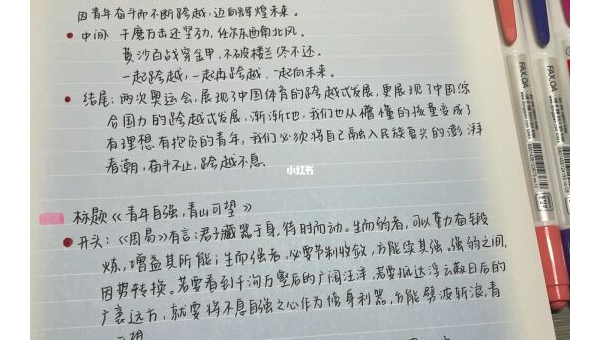 因青年奋斗而不断跨越,迈向辉煌未来。
• 中间: 千磨万击还坚劲,任尔东西南北风。
黄沙百战穿金甲,不破楼兰终不还。
一起跨越,一起再跨越,一起向未来。
• 结尾: 两次奥运会,展现了中国体育的跨越式发展,更展现了中国综
合国力的跨越式发展,渐渐地,我们也从懵懂的孩童变成了
有理想有抱负的青年,我们必须将自己融入民族复兴的澎湃
春潮,奋斗不止,跨越不息。
小红书
标题《青年自强,青山可望》
• 开头:《周易》有言:君子藏器于身,待时而动。生而弱者,可以奋锻
炼,增益其所能;生而强者,必要节制收敛,方能实其强。强弱之间,
因势转换。若要看到千沟万壑后的广阔汪洋,若要抵达浮云蔽日后的
广袤远方,就要将不息自强之心作为修身利器,方能劈波斩浪,青
FAXOA
FAXOA